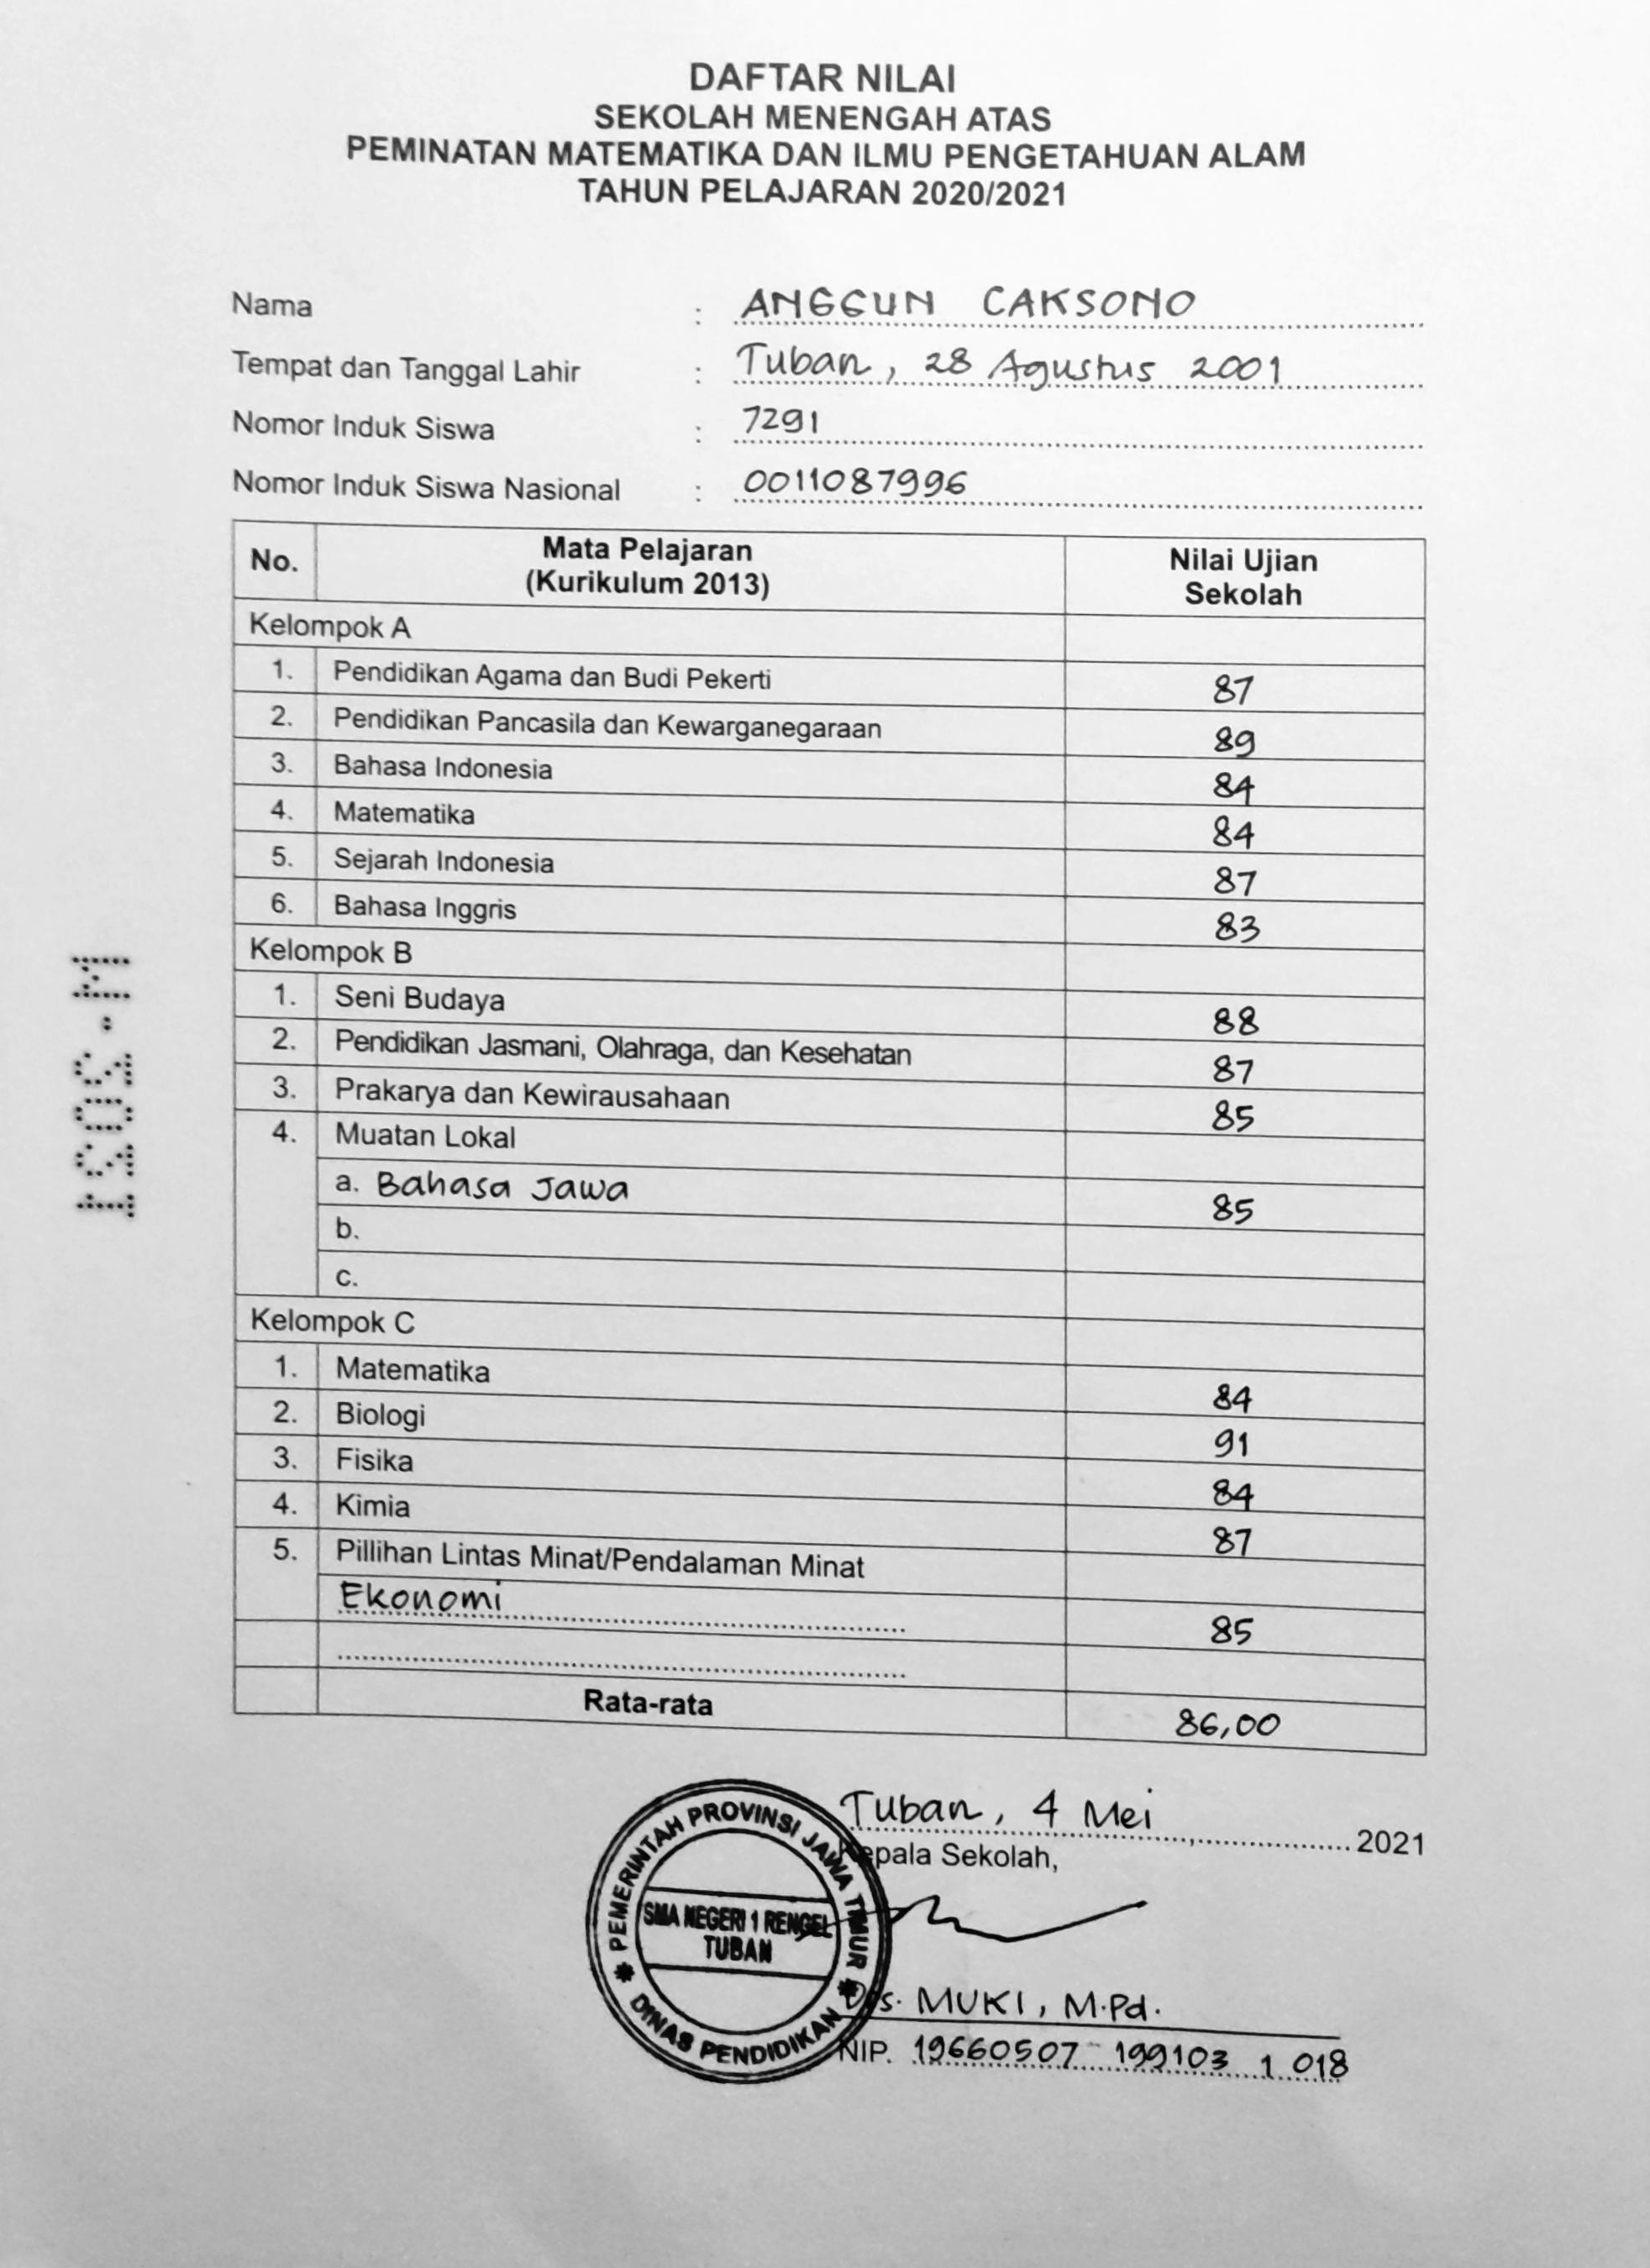 DAFTAR NILAI
SEKOLAH MENENGAH ATAS
PEMINATAN MATEMATIKA DAN ILMU PENGETAHUAN ALAM
TAHUN PELAJARAN 2020/2021
Nama : ANGGUN CAKSONO
Tempat dan Tanggal Lahir : Tuban, 28 Agustus 2001
Nomor Induk Siswa : 7291
Nomor Induk Siswa Nasional : 0011087996
No. Mata Pelajaran (Kurikulum 2013) Nilai Ujian Sekolah
Kelompok A
1. Pendidikan Agama dan Budi Pekerti 87
2. Pendidikan Pancasila dan Kewarganegaraan 89
3. Bahasa Indonesia 84
4. Matematika 84
5. Sejarah Indonesia 87
6. Bahasa Inggris 83
Kelompok B
1. Seni Budaya 88
2. Pendidikan Jasmani, Olahraga, dan Kesehatan 87
3. Prakarya dan Kewirausahaan 85
4. Muatan Lokal
a. Bahasa Jawa 85
b.
c.
Kelompok C
1. Matematika 84
2. Biologi 91
3. Fisika 84
4. Kimia 87
5. Pillihan Lintas Minat/Pendalaman Minat
Ekonomi 85
Rata-rata 86,00
Tuban, 4 Mei, 2021
Kepala Sekolah,
PEMERINTAH PROVINSI JAWA TIMUR
SMA NEGERI 1 RENGEL
TUBAN
DINAS PENDIDIKAN
Drs. MUKI, M.Pd.
NIP. 19660507 199103 1 018
M-2021